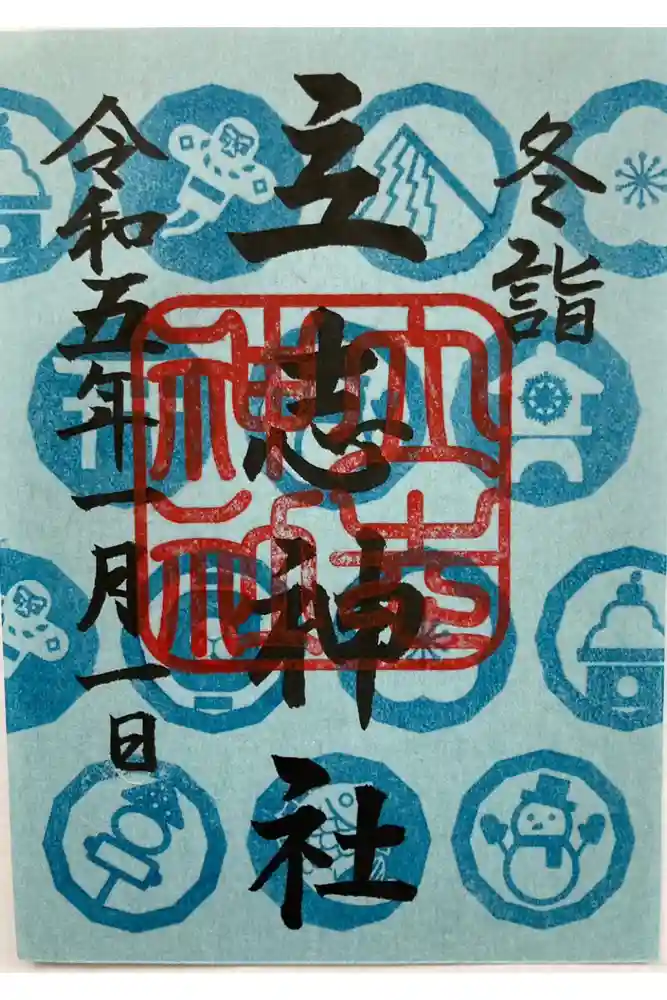 冬詣
立志神社
令和五年一月一日
立志
神社